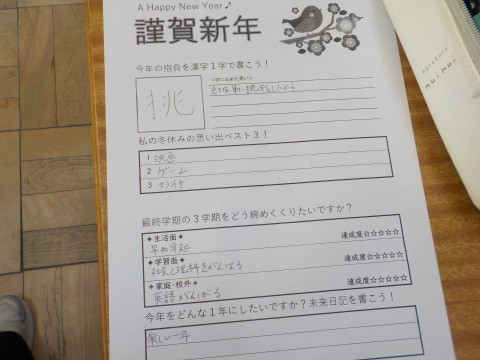 A Happy New Year♪
謹賀新年
今年の抱負を漢字1字で書こう！
挑
色々な事に挑戦したいから
私の冬休みの思い出ベスト３！
1 映画
2 ゲーム
3 カラオケ
最終学期の３学期をどう締めくくりたいですか？
✦生活面✦ 達成度☆☆☆☆☆
早ね早起
✦学習面✦ 達成度☆☆☆☆☆
社会と理科をがんばる
✦家庭・校外✦ 達成度☆☆☆☆☆
英語がんばる
今年をどんな１年にしたいですか？未来日記を書こう！
楽しい一年